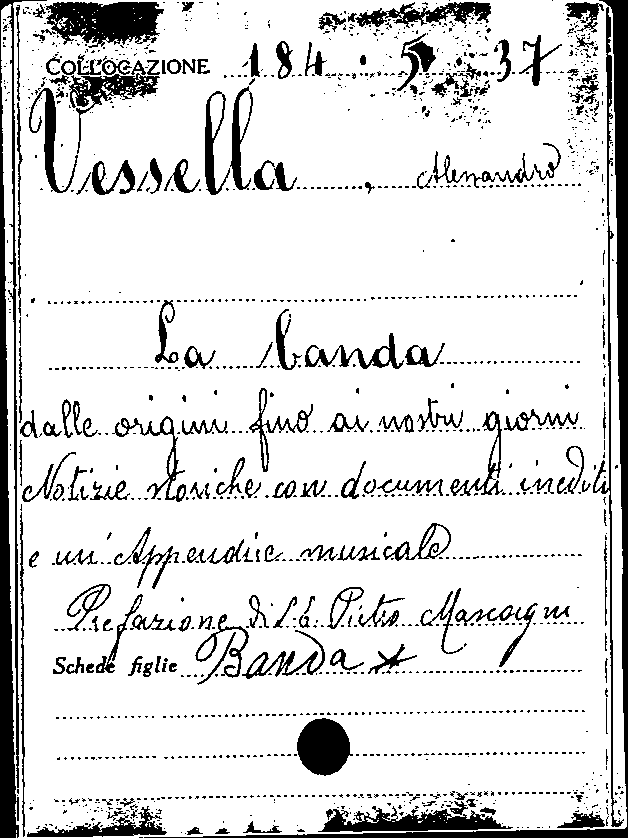 COLLOCAZIONE 184 . 5 . 37
Vessella , Alessandro
La banda
dalle origini fino ai nostri giorni
Notizie storiche con documenti inediti
e un'Appendice musicale
Prefazione di S. E. Pietro Mascagni
Schede figlie Banda *